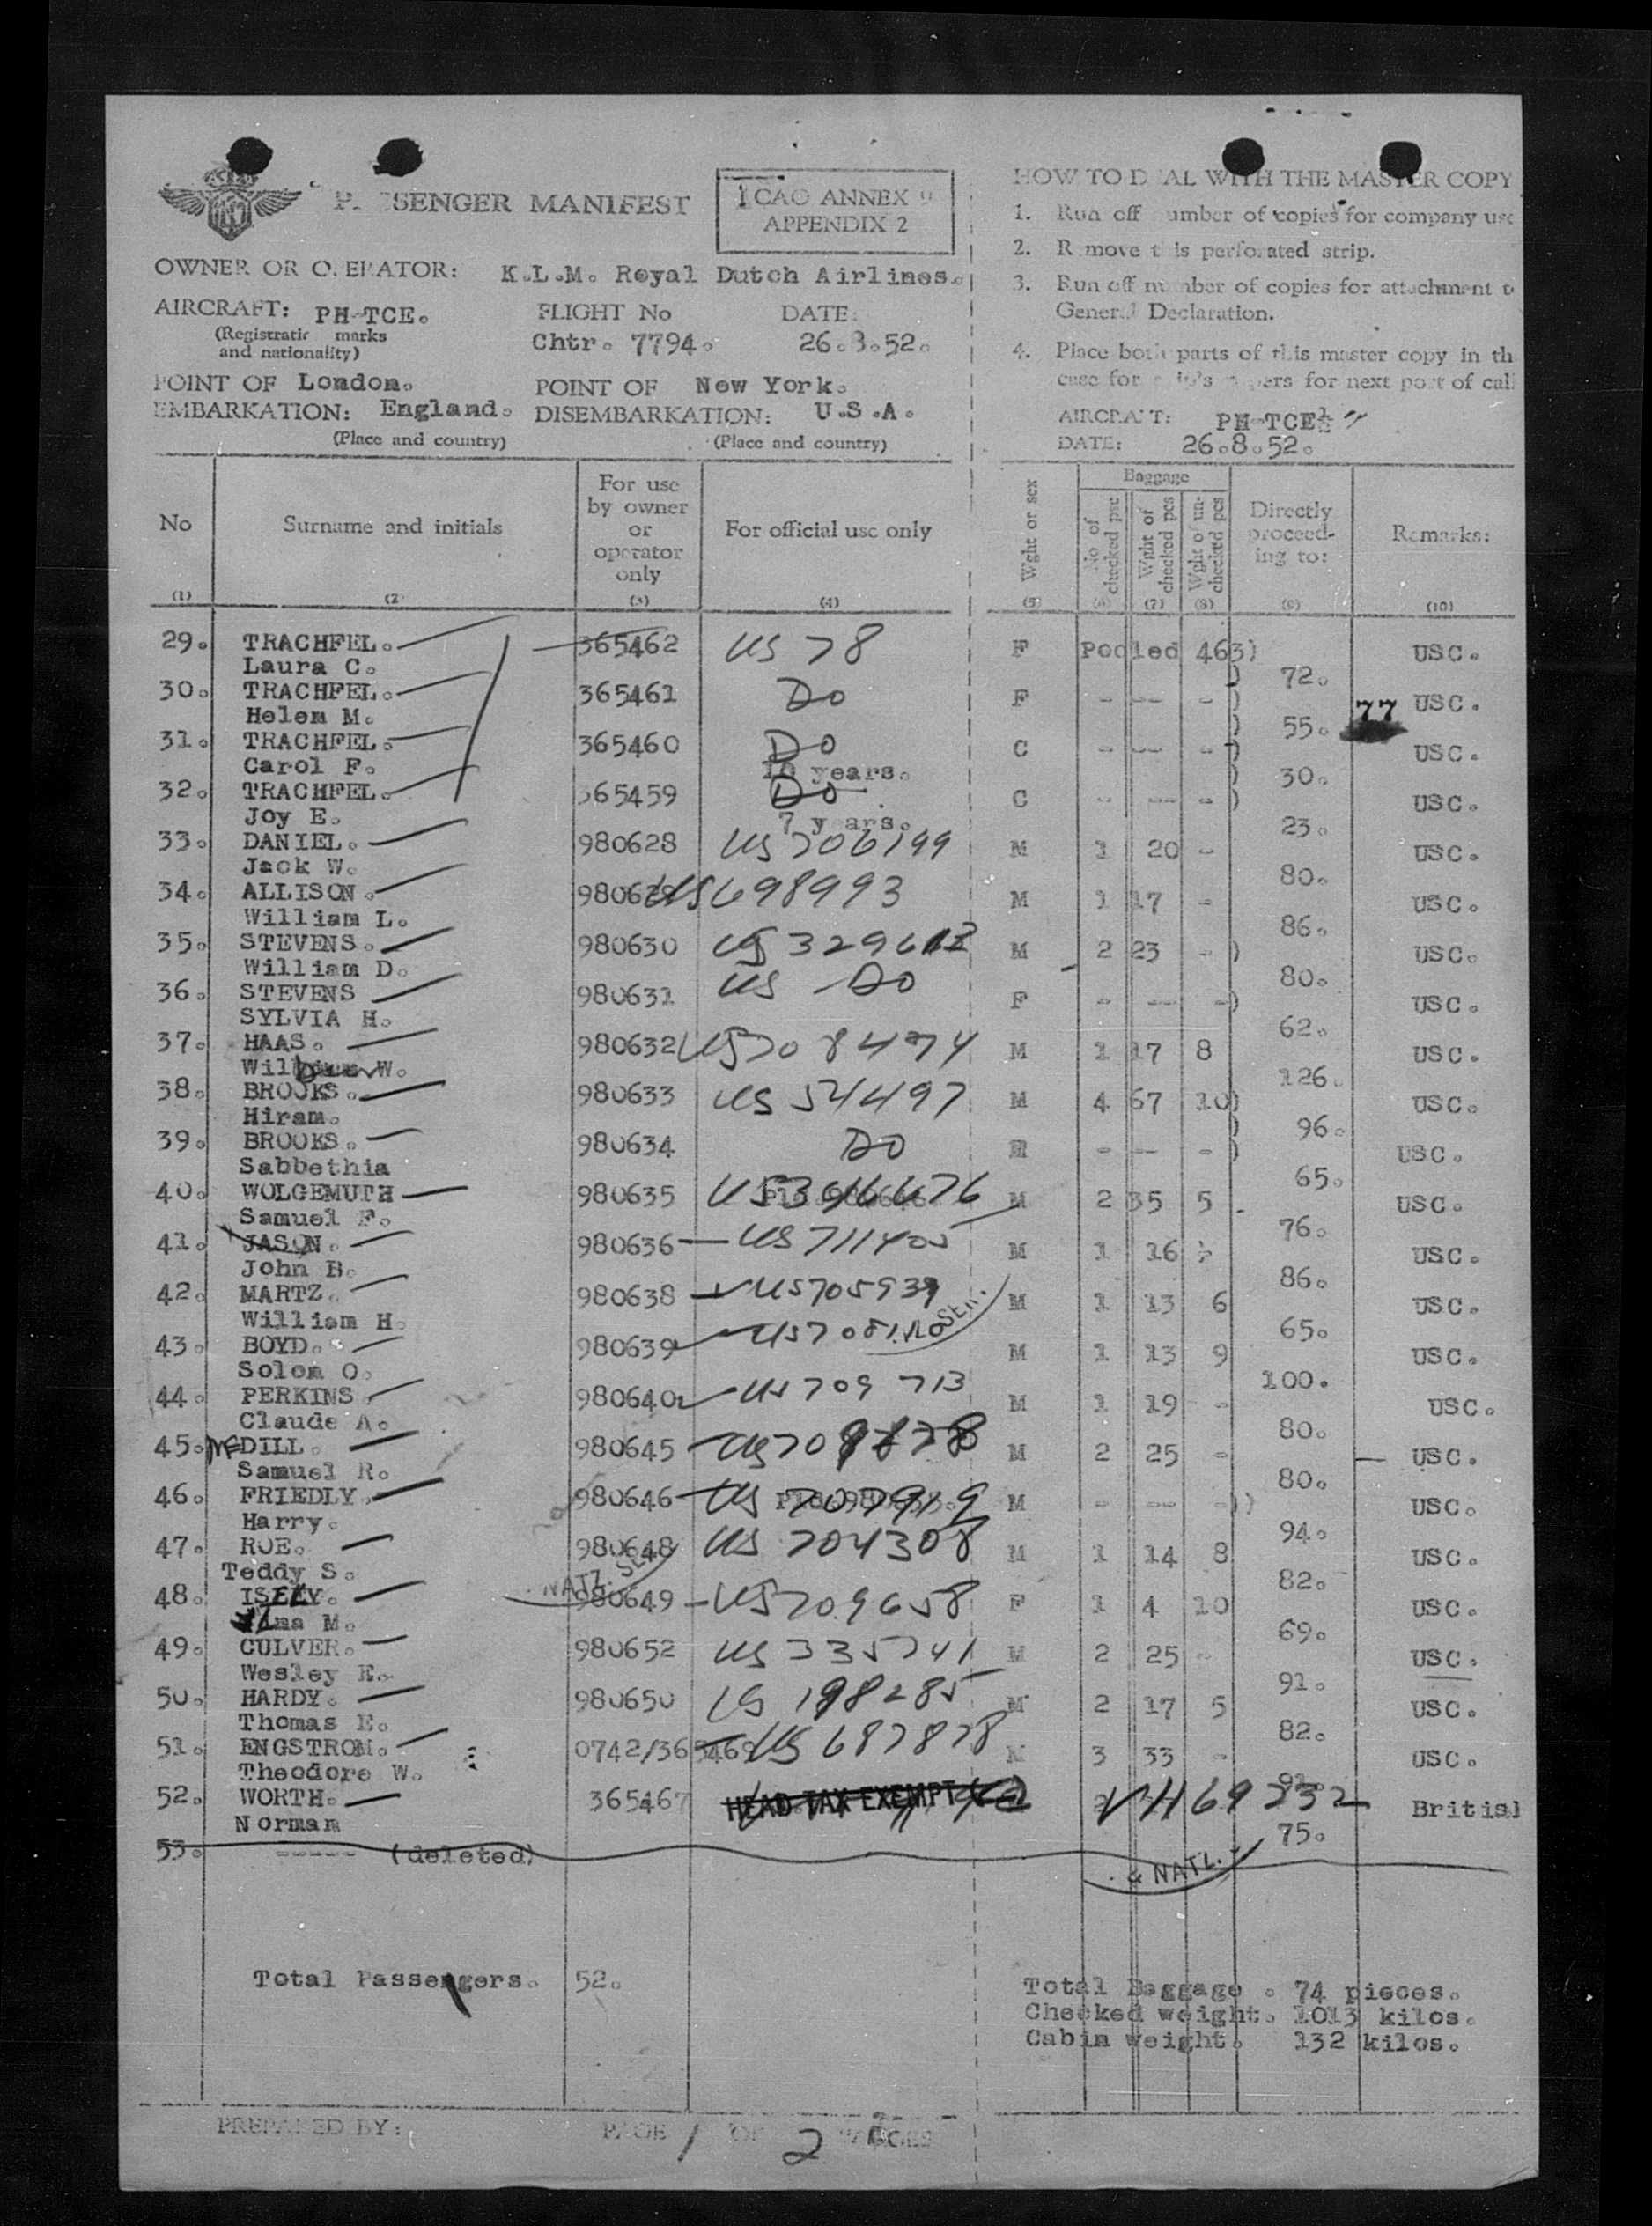 PASSENGER MANIFEST
ICAO ANNEX 9
APPENDIX 2
HOW TO DEAL WITH THE MASTER COPY
1. Run off number of copies for company use
2. Remove this perforated strip.
3. Run off number of copies for attachment to
General Declaration.
4. Place both parts of this master copy in the
case for ship's papers for next port of call
OWNER OR OPERATOR: K.L.M. Royal Dutch Airlines.
AIRCRAFT: PH-TCE. FLIGHT No DATE:
(Registration marks
and nationality) Chtr. 7794. 26.8.52.
POINT OF London. POINT OF New York.
EMBARKATION: England. DISEMBARKATION: U.S.A.
(Place and country) (Place and country)
AIRCRAFT: PH-TCE
DATE: 26.8.52.
No Surname and initials For use by owner or operator only For official use only Wght or sex Baggage No of checked pcs Wght of checked pcs Wght of un-checked pcs Directly proceed-ing to: Remarks:
(1) (2) (3) (4) (5) (6) (7) (8) (9) (10)
29. TRACHFEL. 365462 US 78 F Pooled 463) USC.
Laura C. 72.
30. TRACHFEL. 365461 Do F - -- - ) 77 USC.
Helen M. 55.
31. TRACHFEL. 365460 Do C - -- - ) USC.
Carol F. 10 years. 30.
32. TRACHFEL. 365459 Do C - -- - ) USC.
Joy E. 7 years. 23.
33. DANIEL. 980628 US 706199 M 1 20 - USC.
Jack W. 80.
34. ALLISON. 980629 US 698993 M 1 17 - USC.
William L. 86.
35. STEVENS. 980630 US M 2 23 - ) USC.
William D. 80.
36. STEVENS 980631 US Do F - -- - ) USC.
SYLVIA H. 62.
37. HAAS. 980632 US 708474 M 1 17 8 USC.
W. 126.
38. BROOKS. 980633 US 54497 M 4 67 10) USC.
Hiram. 96.
39. BROOKS. 980634 Do - -- - ) USC.
Sabbethia 65.
40. WOLGEMUTH 980635 M 2 35 5 USC.
Samuel F. 76.
41. JASON. 980636 US 711405 M 1 16 USC.
John B. 86.
42. MARTZ. 980638 US M 1 13 6 USC.
William H. 65.
43. BOYD. 980639 M 1 13 9 USC.
Solon O. 100.
44. PERKINS 980640 US 709713 M 1 19 - USC.
Claude A. 80.
45. McDILL. 980645 M 2 25 - USC.
Samuel R. 80.
46. FRIEDLY. 980646 M - -- - ) USC.
Harry. 94.
47. ROE. 980648 US 704308 M 1 14 8 USC.
Teddy S. 82.
48. 980649 US 709658 F 1 4 10 USC.
M. 69.
49. CULVER. 980652 US 335741 M 2 25 - USC.
Wesley E. 91.
50. HARDY. 980650 US 198285 M 2 17 5 USC.
Thomas E. 82.
51. ENGSTROM. 0742/365469 US 687878 M 3 33 - USC.
Theodore W. 91.
52. WORTH. 365467 HEAD TAX EXEMPT VH 69232 British
Norman 75.
53. ----- (deleted)
& NATZ.
Total Passengers. 52.
Total Baggage. 74 pieces.
Checked weight. 1013 kilos.
Cabin weight. 132 kilos.
PREPARED BY: PAGE 1 OF 2 PAGES